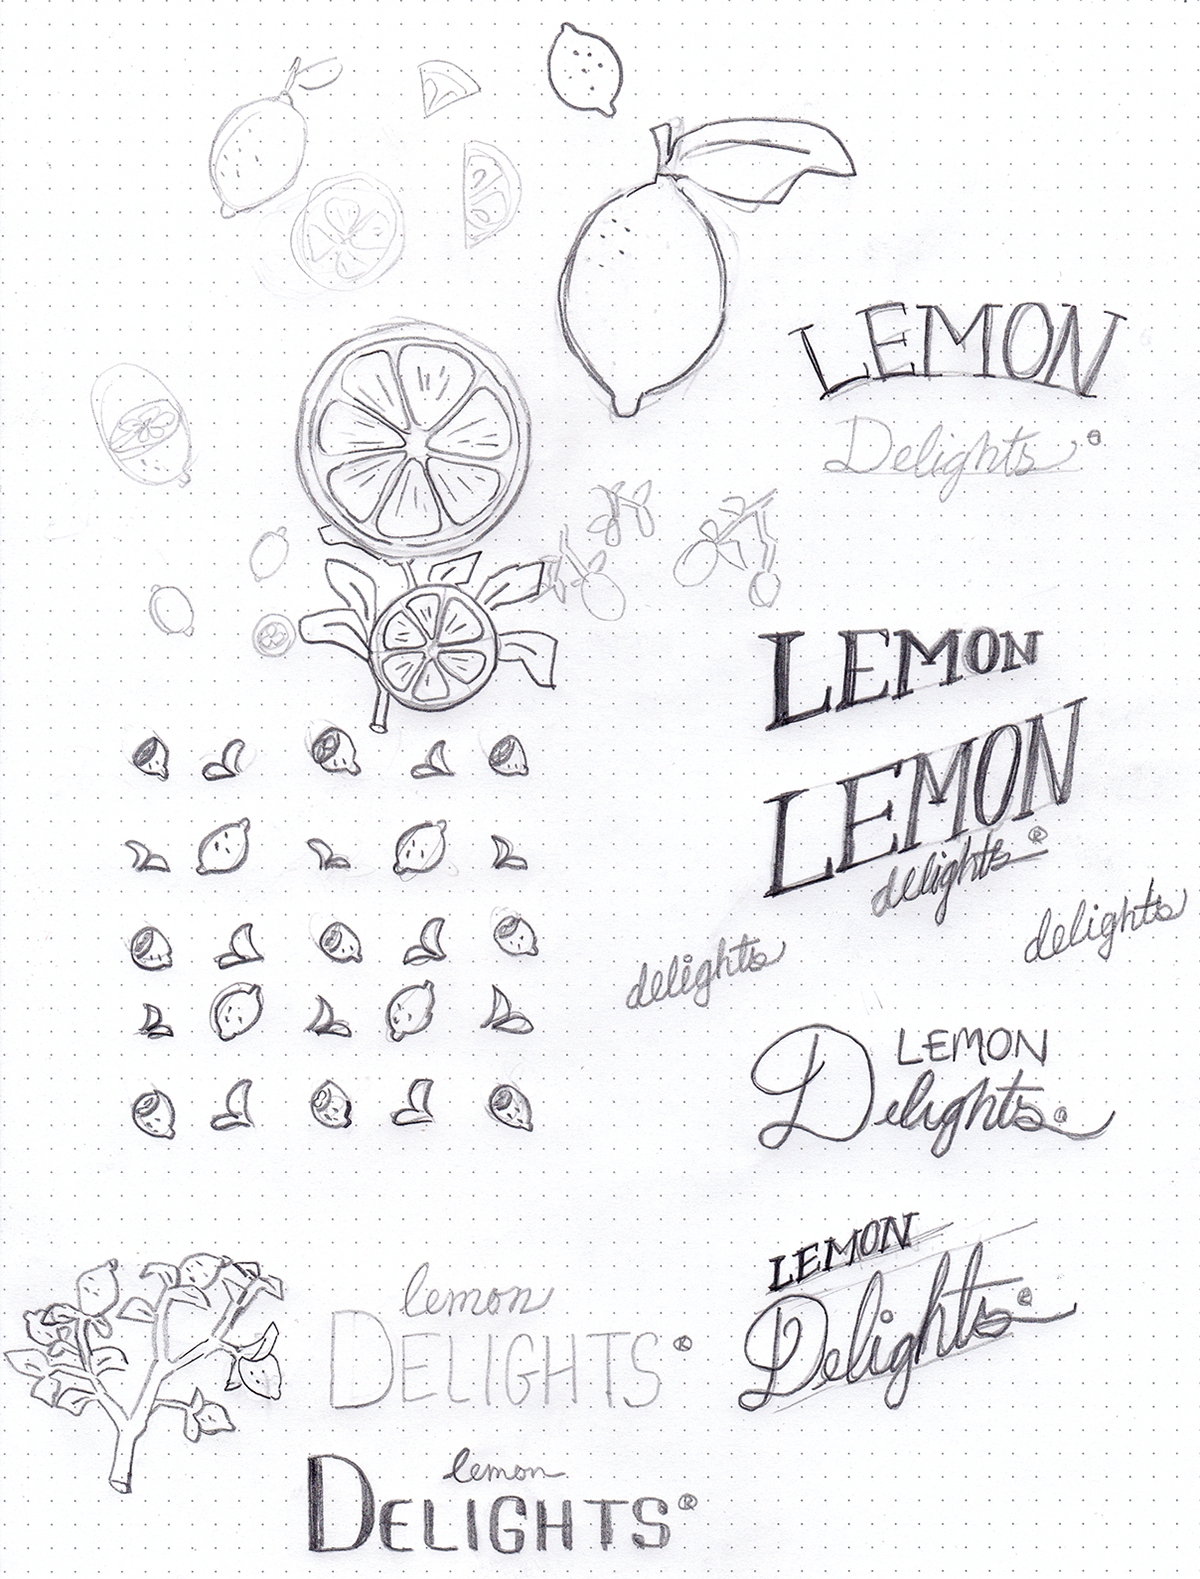 LEMON
Delights®
LEMON
LEMON
delights®
delights
delights
LEMON
Delights®
LEMON
Delights®
lemon
DELIGHTS®
lemon
DELIGHTS®